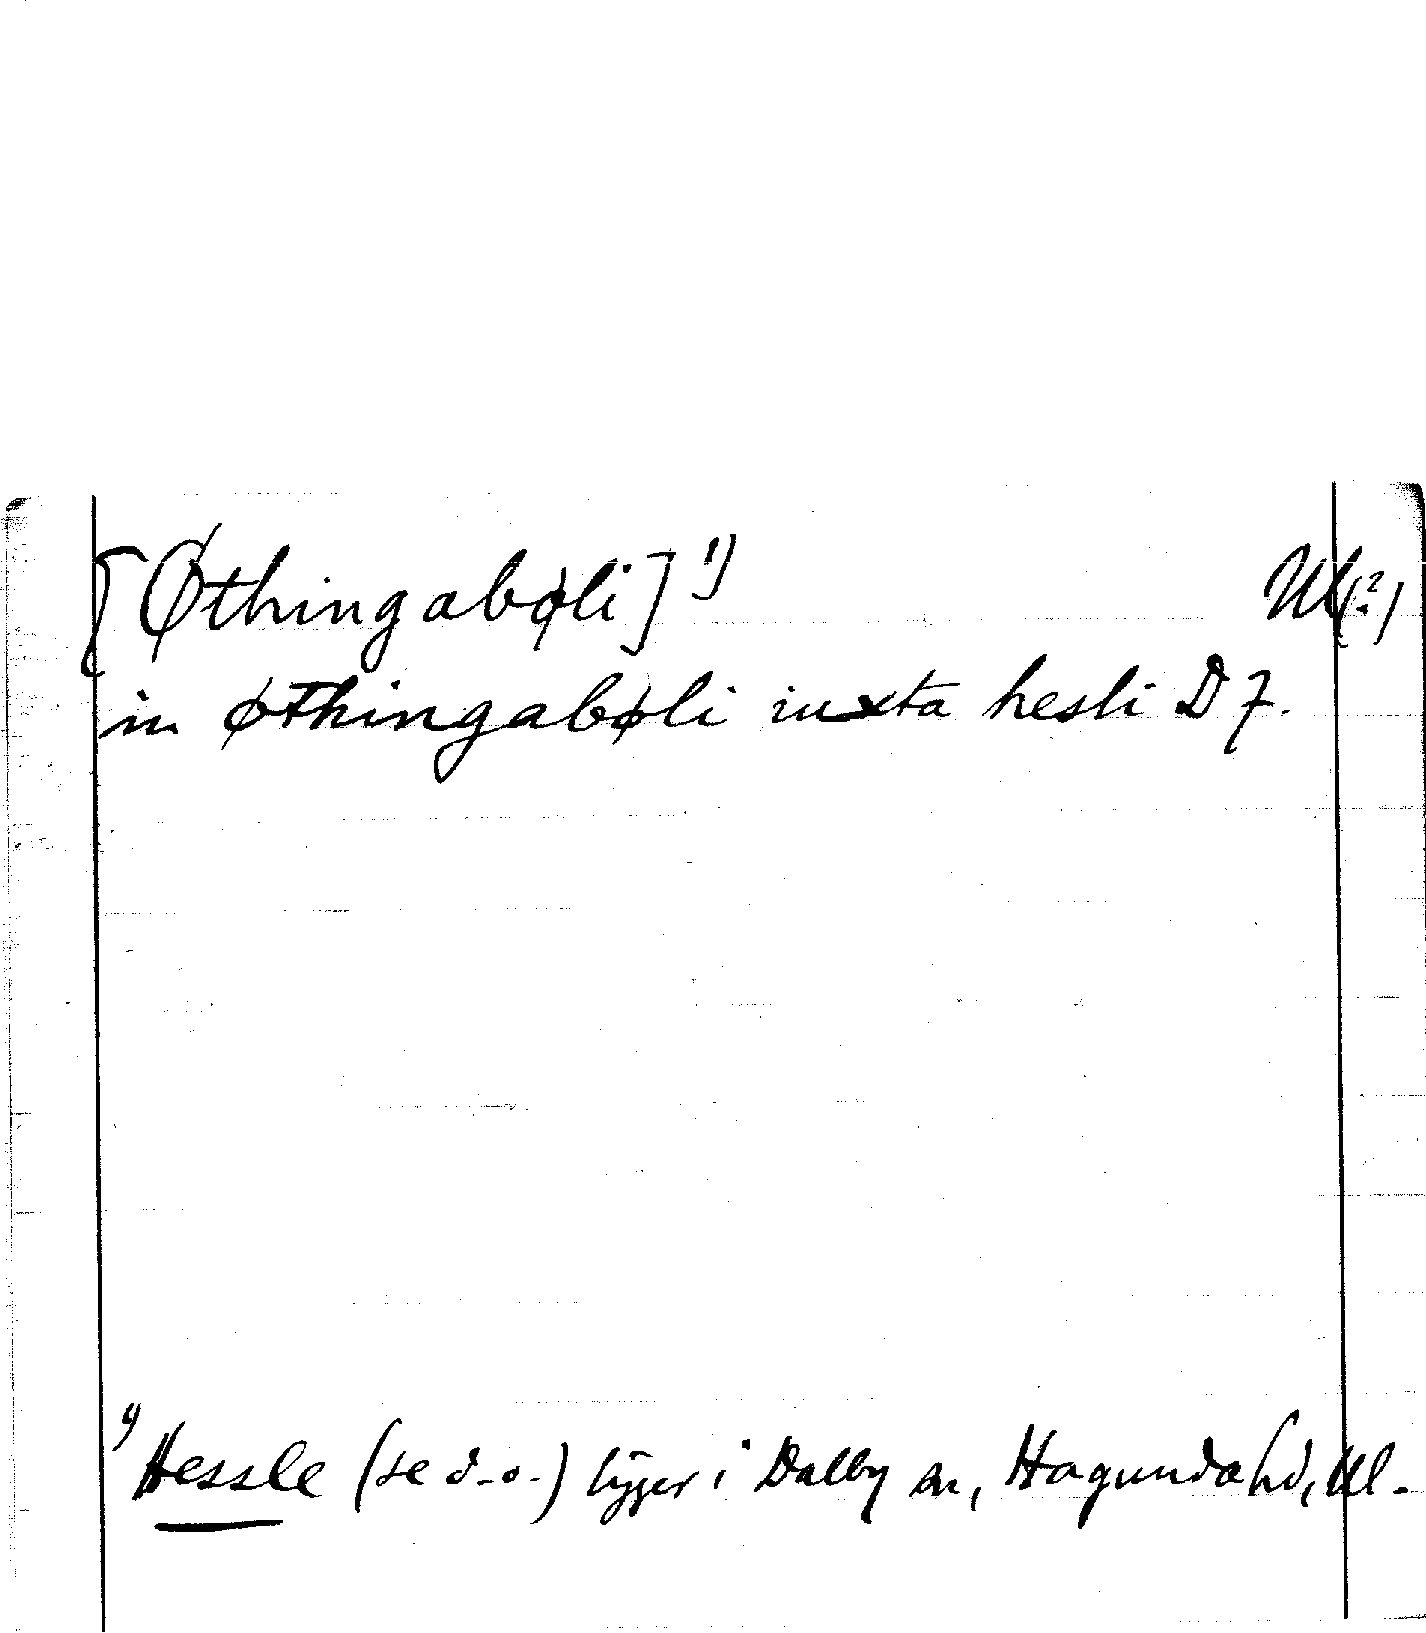 [Øthingabøli] 1) Ul(?)
in øthingabøli iuxta hesli D 7.
1) Hessle (se d.o.) ligger i Dalby sn, Hagunda hd, Ul.